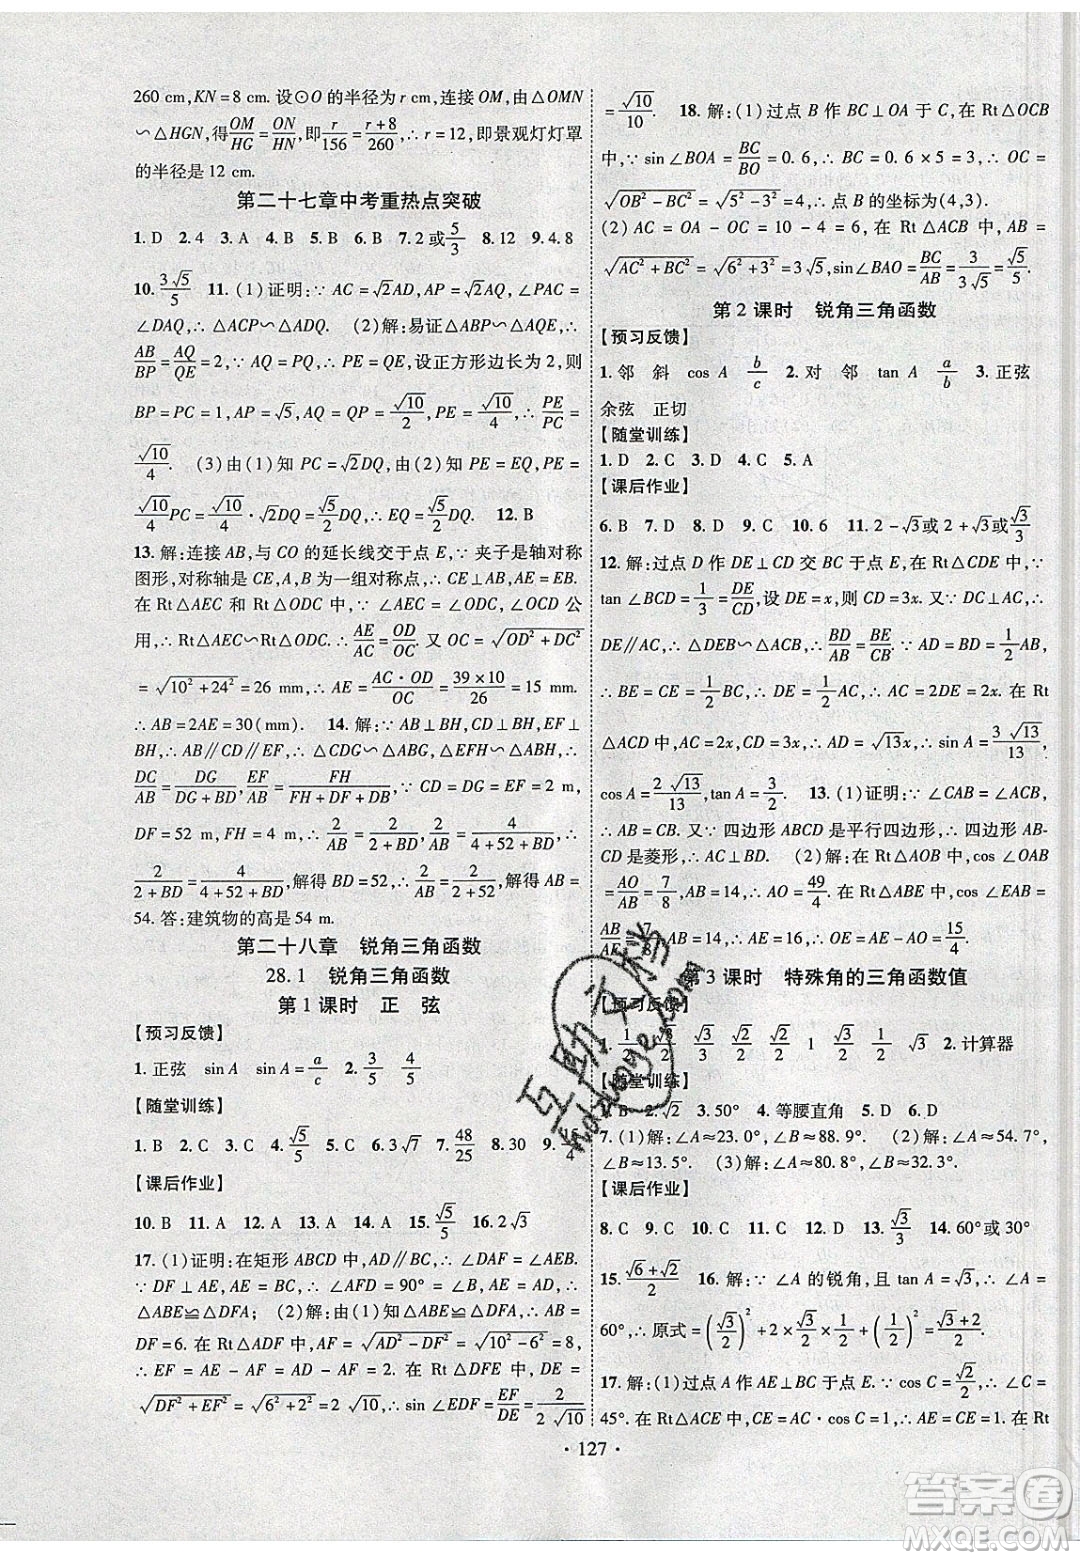 260 cm,KN=8 cm. 设⊙O 的半径为 r cm,连接 OM,由△OMN
∽△HGN,得OM/HG=ON/HN,即r/156=(r+8)/260,∴r=12,即景观灯灯罩
的半径是 12 cm.
第二十七章中考重热点突破
1. D 2. 4 3. A 4. B 5. B 6. B 7. 2 或5/3 8. 12 9. 4. 8
10. 3√5/5 11. (1)证明:∵AC=√2AD,AP=√2AQ,∠PAC=
∠DAQ,∴△ACP∽△ADQ. (2)解:易证△ABP∽△AQE,∴
AB/BP=AQ/QE=2,∵AQ=PQ,∴PE=QE,设正方形边长为 2,则
BP=PC=1,AP=√5,AQ=QP=√10/2,PE=√10/4,∴PE/PC=
√10/4. (3)由(1)知 PC=√2DQ,∵PE=EQ,PE=
√10/4PC=√10/4·√2DQ=√5/2DQ,∴EQ=√5/2DQ. 12. B
13. 解:连接 AB,与 CO 的延长线交于点 E,∵夹子是轴对称
图形,对称轴是 CE,A,B 为一组对称点,∴CE⊥AB,AE=EB.
在 Rt△AEC 和 Rt△ODC 中,∵∠AEC=∠ODC,∠OCD 公
用,∴Rt△AEC∽Rt△ODC. ∴AE/AC=OD/OC. 又 OC=√(OD²+DC²)
=√(10²+24²)=26 mm,∴AE=AC·OD/OC=39×10/26=15 mm.
∴AB=2AE=30(mm). 14. 解:∵AB⊥BH,CD⊥BH,EF⊥
BH,∴AB∥CD∥EF,∴△CDG∽△ABG,△EFH∽△ABH,∴
DC/AB=DG/(DG+BD),EF/AB=FH/(FH+DF+BD). ∵CD=DG=EF=2 m,
DF=52 m,FH=4 m,∴2/AB=2/(2+BD),2/AB=4/(4+52+BD),∴
2/(2+BD)=4/(4+52+BD),解得 BD=52,∴2/AB=2/(2+52),解得 AB=
54. 答:建筑物的高是 54 m.
第二十八章 锐角三角函数
28. 1 锐角三角函数
第 1 课时 正 弦
【预习反馈】
1. 正弦 sin A sin A=a/c 2. 3/5 4/5
【随堂训练】
1. B 2. C 3. C 4. √5/5 5. C 6. 3√7 7. 48/25 8. 30 9.
【课后作业】
10. B 11. A 12. A 13. A 14. A 15. √5/5 16. 2√3
17. (1)证明:在矩形 ABCD 中,AD∥BC,∴∠DAF=∠AEB.
∵DF⊥AE,AE=BC,∴∠AFD=90°=∠B,AE=AD,∴
△ABE≌△DFA; (2)解:由(1)知△ABE≌△DFA,∴AB=
DF=6. 在 Rt△ADF 中,AF=√(AD²-DF²)=√(10²-6²)=8,
∴EF=AE-AF=AD-AF=2. 在 Rt△DFE 中,DE=
√(DF²+EF²)=√(6²+2²)=2√10,∴sin∠EDF=EF/DE=2/(2√10)
=√10/10. 18. 解:(1)过点 B 作 BC⊥OA 于 C,在 Rt△OCB
中,∵sin∠BOA=BC/BO=0. 6,∴BC=3,∴OC=
√(OB²-BC²)=√(5²-3²)=4,∴点 B 的坐标为(4,3).
(2)AC=OA-OC=10-4=6,在 Rt△ACB 中,AB=
√(AC²+BC²)=√(6²+3²)=3√5,∴sin∠BAO=BC/AB=3/(3√5)=√5/5.
第 2 课时 锐角三角函数
【预习反馈】
1. 邻 斜 cos A b/c 2. 对 邻 tan A a/b 3. 正弦
余弦 正切
【随堂训练】
1. D 2. C 3. D 4. C 5. A
【课后作业】
6. B 7. D 8. D 9. C 10. 6 11. 2-√3或 2+√3或√3/3
12. 解:过点 D 作 DE⊥CD 交 BC 于点 E,在 Rt△CDE 中,∵
tan∠BCD=1/3=DE/CD,设 DE=x,则 CD=3x. 又∵DC⊥AC,∴
DE∥AC,∴△DEB∽△ACB,∴BD/AB=BE/CB. ∵AD=BD=1/2AB,
∴BE=CE=1/2BC,∴DE=1/2AC,∴AC=2DE=2x. 在 Rt
△ACD 中,AC=2x,CD=3x,∴AD=√13x,∴sin A=3√13/13,
cos A=2√13/13,tan A=3/2. 13. (1)证明:∵∠CAB=∠ACB,
∴AB=CB. 又∵四边形 ABCD 是平行四边形,∴四边形 AB-
CD 是菱形,∴AC⊥BD. (2)解:在 Rt△AOB 中,cos∠OAB
=AO/AB=7/8,AB=14,∴AO=49/4. 在 Rt△ABE 中,cos∠EAB=
AB/AE=7/8,AB=14,∴AE=16,∴OE=AE-AO=15/4.
第 3 课时 特殊角的三角函数值
【预习反馈】
1. 1/2 √3/2 √3/3 √2/2 √2/2 1 √3/2 1/2 √3 2. 计算器
【随堂训练】
1. B 2. √2 3. 50° 4. 等腰直角 5. D 6. D
7. (1)解:∠A≈25°,∠B≈29. 7°. (2)解:∠A≈54. 7°,
∠B≈13. 5°. (3)解:∠A≈80. 8°,∠B≈56. 1°.
【课后作业】
8. C 9. C 10. B 11. A 12. D 13. √3/3 14. 60°或 30°
15. (√6+√2)/2 16. 解:∵∠A 的锐角,且 tan A=√3,∴∠A=
60°,∴原式=(√3/2)²+2×√3/2×1/2+(1/2)²=(√3+2)/2.
17. 解:(1)过点 A 作 AE⊥BC 于点 E. ∵cos C=√2/2,∴∠C=
45°. 在 Rt△ACE 中,CE=AC·cos C=1,∴AE=CE=1. 在 Rt
· 127 ·
互助文档
hdzuoye.com
答案圈
MXQE.COM